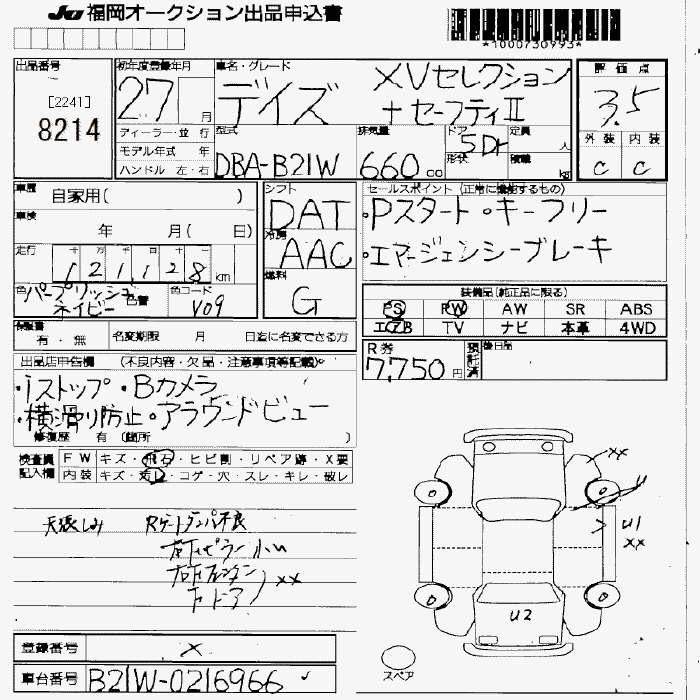 JU 福岡オークション出品申込書
*1000730993*
出品番号
[2241]
8214
初年度登録年月
27 月
ディーラー・並 行
モデル年式 年
ハンドル 左・右
車名・グレード
デイズ XVセレクション
+セーフティⅡ
型式
DBA-B21W
排気量
660 cc
ドア 5Dr
形状
定員 人
積載 kg
評 価 点
3.5
外 装 内 装
C C
車歴
自家用( )
車検
年 月( 日)
走行
121,128 km
色 パープリッシュ
ネイビー
色替
色コード
V09
シフト
DAT
冷房
AAC
燃料
G
セールスポイント (正常に機能するもの)
・Pスタート・キーフリー
・エマージェンシーブレーキ
装備品(純正品に限る)
PS PW AW SR ABS
エアB TV ナビ 本革 4WD
保証書
有・無
名変期限 月 日迄に名変できる方
R券
7,750円
預託済
後日品
出品店申告欄 (不良内容・欠品・注意事項等記載)
・iストップ・Bカメラ
・横滑り防止・アラウンドビュー
修復歴 有 (箇所 )
検査員
記入欄
FW キズ・飛石・ヒビ割・リペア跡・X要
内装 キズ・汚れ・コゲ・穴・スレ・キレ・破レ
天張しみ Rゲートダンパ不良
右下ピラー小U
右下フェンダ
下ドア XX
XX
U
U1
XX
U2
スペア
登録番号 X
車台番号 B21W-0216966